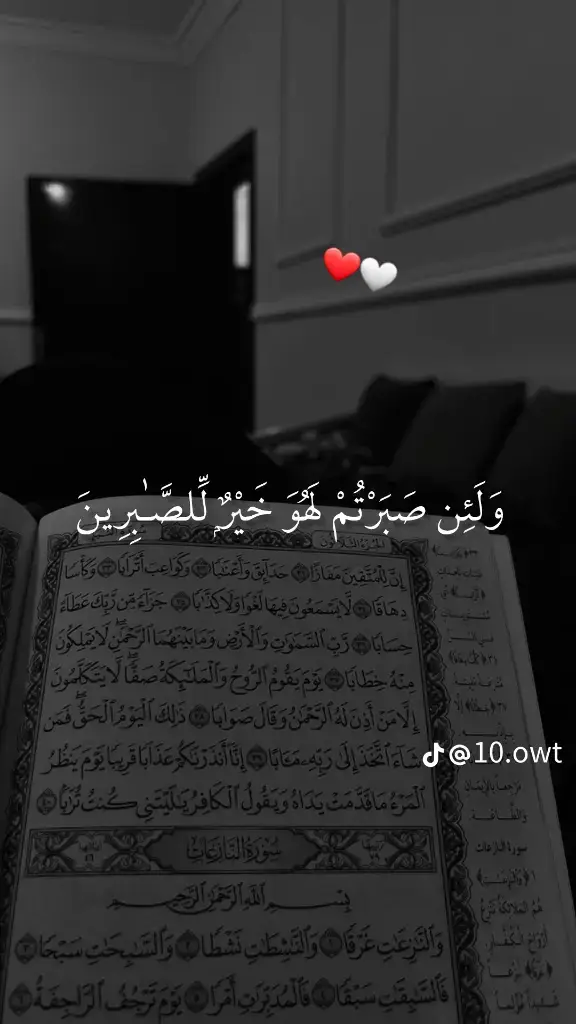 وَلَئِن صَبَرْتُمْ لَهُوَ خَيْرٌ لِّلصَّـٰبِرِينَ
إِنَّ لِلْمُتَّقِينَ مَفَازًا ٣١ حَدَآئِقَ وَأَعْنَـٰبًا ٣٢ وَكَوَاعِبَ أَتْرَابًا ٣٣ وَكَأْسًا
دِهَاقًا ٣٤ لَّا يَسْمَعُونَ فِيهَا لَغْوًا وَلَا كِذَّٰبًا ٣٥ جَزَآءً مِّن رَّبِّكَ عَطَآءً
حِسَابًا ٣٦ رَّبِّ ٱلسَّمَـٰوَٰتِ وَٱلْأَرْضِ وَمَا بَيْنَهُمَا ٱلرَّحْمَـٰنِ ۖ لَا يَمْلِكُونَ
مِنْهُ خِطَابًا ٣٧ يَوْمَ يَقُومُ ٱلرُّوحُ وَٱلْمَلَـٰٓئِكَةُ صَفًّا ۖ لَّا يَتَكَلَّمُونَ
إِلَّا مَنْ أَذِنَ لَهُ ٱلرَّحْمَـٰنُ وَقَالَ صَوَابًا ٣٨ ذَٰلِكَ ٱلْيَوْمُ ٱلْحَقُّ ۖ فَمَن
شَآءَ ٱتَّخَذَ إِلَىٰ رَبِّهِۦ مَـَٔابًا ٣٩ إِنَّآ أَنذَرْنَـٰكُمْ عَذَابًا قَرِيبًا يَوْمَ يَنظُرُ
@10.owt
ٱلْمَرْءُ مَا قَدَّمَتْ يَدَاهُ وَيَقُولُ ٱلْكَافِرُ يَـٰلَيْتَنِى كُنتُ تُرَٰبًۢا ٤٠
سُورَةُ ٱلنَّازِعَاتِ
بِسْمِ ٱللَّهِ ٱلرَّحْمَـٰنِ ٱلرَّحِيمِ
وَٱلنَّـٰزِعَـٰتِ غَرْقًا ١ وَٱلنَّـٰشِطَـٰتِ نَشْطًا ٢ وَٱلسَّـٰبِحَـٰتِ سَبْحًا ٣
فَٱلسَّـٰبِقَـٰتِ سَبْقًا ٤ فَٱلْمُدَبِّرَٰتِ أَمْرًا ٥ يَوْمَ تَرْجُفُ ٱلرَّاجِفَةُ ٦
سورة النازعات